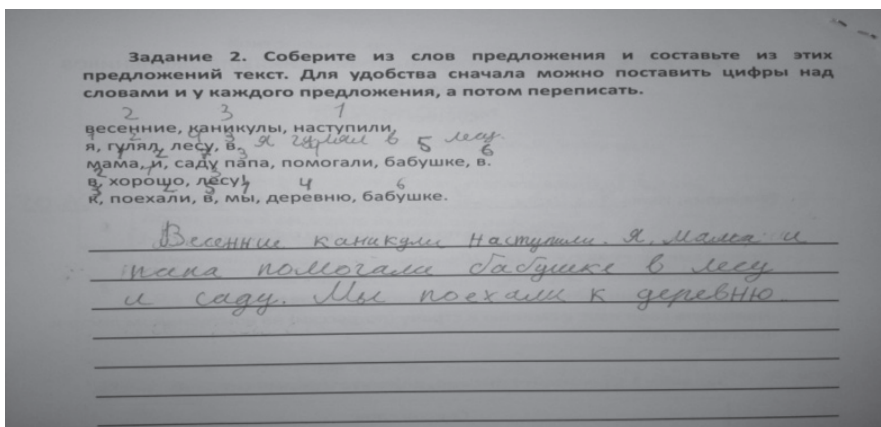 Задание 2. Соберите из слов предложения и составьте из этих
предложений текст. Для удобства сначала можно поставить цифры над
словами и у каждого предложения, а потом переписать.
2 3 1
весенние, каникулы, наступили.
я, гулял, лесу, в. я гулял в лесу.
5 6
мама, и, саду папа, помогали, бабушке, в.
в, хорошо, лесу!
4 6
к, поехали, в, мы, деревню, бабушке.
Весенние каникули наступили. Я, мама и
папа помогали бабушке в лесу
и саду. Мы поехали к деревню